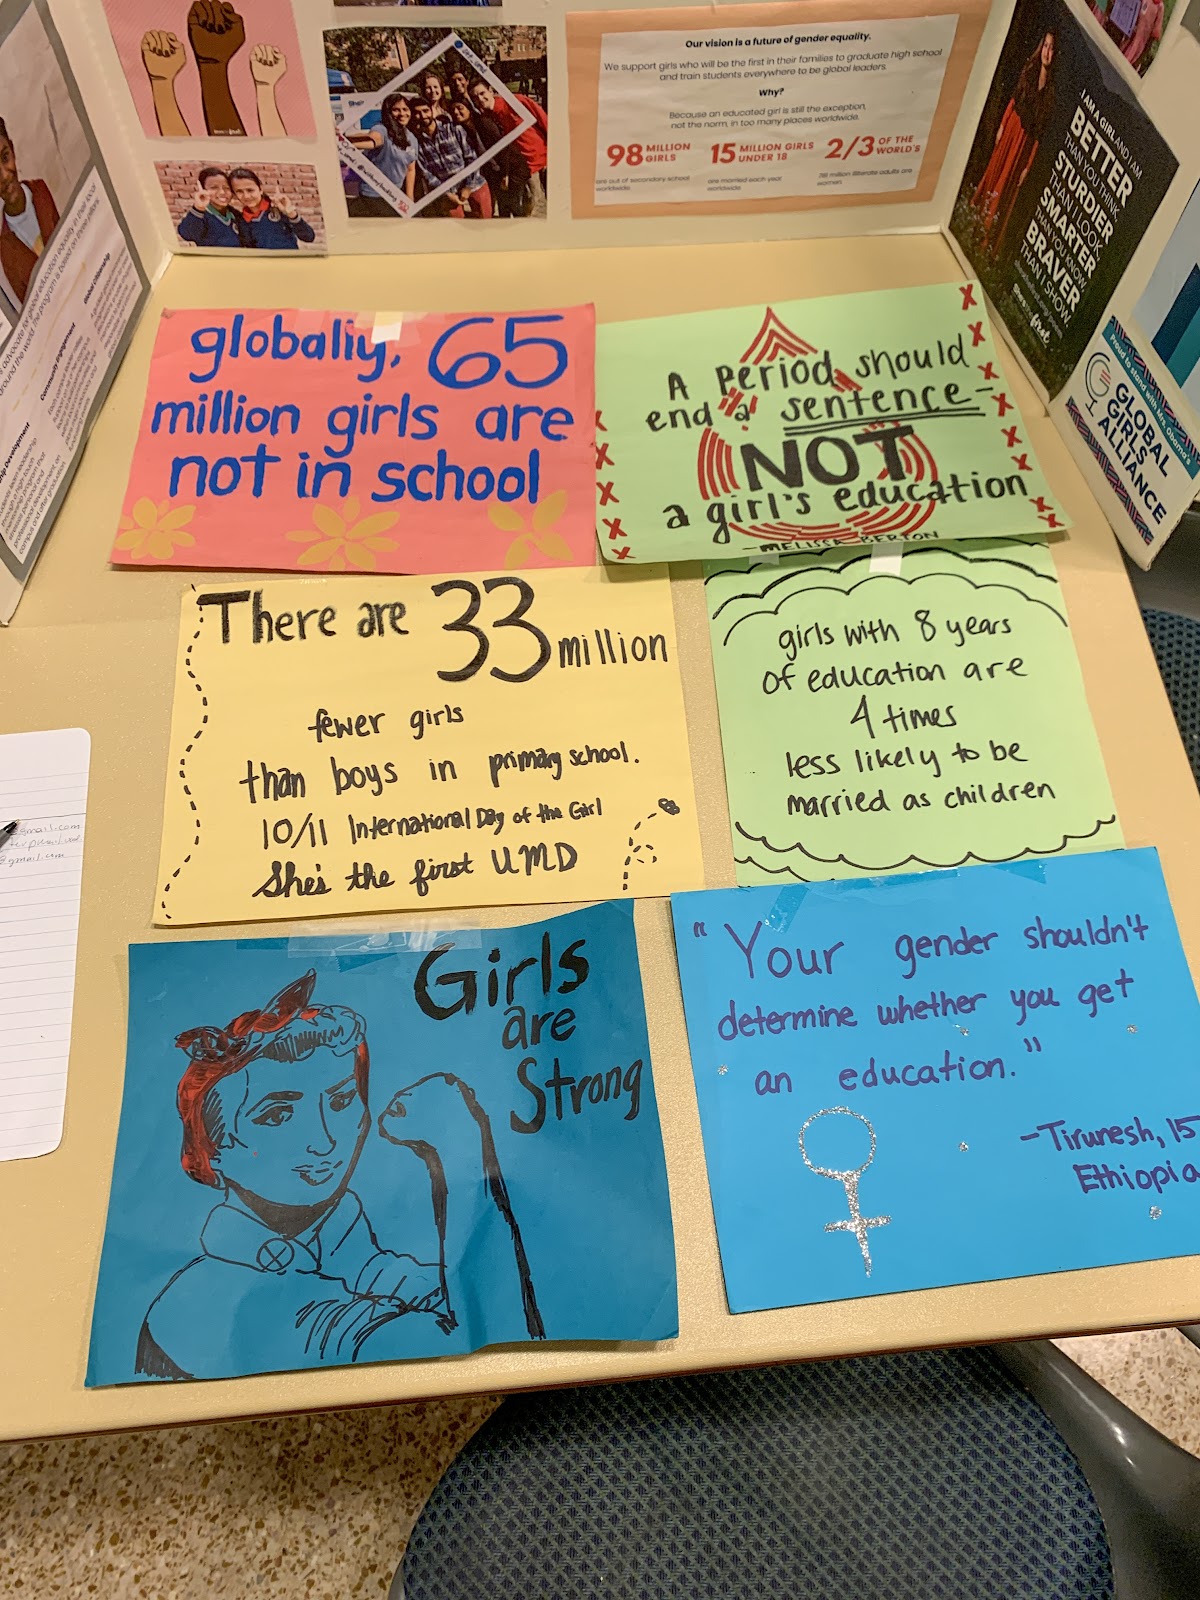 Our vision is a future of gender equality.
We support girls who will be the first in their families to graduate high school
and train students everywhere to be global leaders.
Why?
Because an educated girl is still the exception,
not the norm, in too many places worldwide.
98 MILLION GIRLS
are out of secondary school
worldwide.
15 MILLION GIRLS UNDER 18
are married each year
worldwide
2/3 OF THE WORLD'S
illiterate adults are
women.
I AM A GIRL AND I AM
BETTER
THAN YOU THINK
STURDIER
THAN I LOOK
SMARTER
THAN YOU KNOW
BRAVER
THAN I SHOW.
Proud to stand with Mrs. Obama's
GLOBAL
GIRLS
ALLIANCE
advocate for global education equality in their local
around the world, the program is based on three pillars
Global Citizenship
Community Engagement
Development
globally, 65
million girls are
not in school
A Period should
end a sentence-
NOT
a girl's education
-MELISSA BERTON
There are 33 million
fewer girls
than boys in primary school.
10/11 International Day of the Girl
She's the first UMD
girls with 8 years
of education are
4 times
less likely to be
married as children
@gmail.com
@gmail.com
Girls
are
Strong
"Your gender shouldn't
determine whether you get
an education."
-Tirunesh, 15
Ethiopia